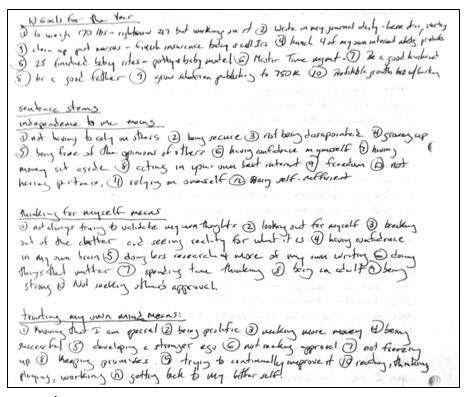 10 Goals for the Year
① to weigh 170 lbs - right now 217 but working on it ② Write in my journal daily -
③ clean up past messes - finish insurance ③ call IRS ④ launch 4 of my own internet products
⑤ 25 finished baby sites - potty & baby model ⑥ Master Time mgmt - ⑦ Be a good husband
⑧ be a good father ⑨ grow publishing to 750K ⑩ Profitable growth
sentence stems
independence to me means
① not having to rely on others ② being secure ③ not being disappointed ④ growing up
⑤ being free of the opinions of others ⑥ having confidence in myself ⑦ having
money set aside ⑧ acting in your own best interest ⑨ freedom ⑩ not
having partners, ⑪ relying on oneself ⑫ Being self-sufficient
thinking for myself means
① not always trying to validate my own thoughts ② looking out for myself ③ breaking
out of the clutter and seeing reality for what it is ④ having confidence
in my own brain ⑤ doing less research & more of my own writing ⑥ doing
things that matter ⑦ spending time thinking ⑧ being an adult ⑨ being
strong ⑩ Not seeking other's approval.
trusting my own mind means:
① Knowing that I am special ② being prolific ③ making more money ④ being
successful ⑤ developing a stronger ego ⑥ not seeking approval ⑦ not freezing
up ⑧ keeping promises ⑨ trying to continually improve it ⑩ reading, thinking
playing, working ⑪ getting back to my better self